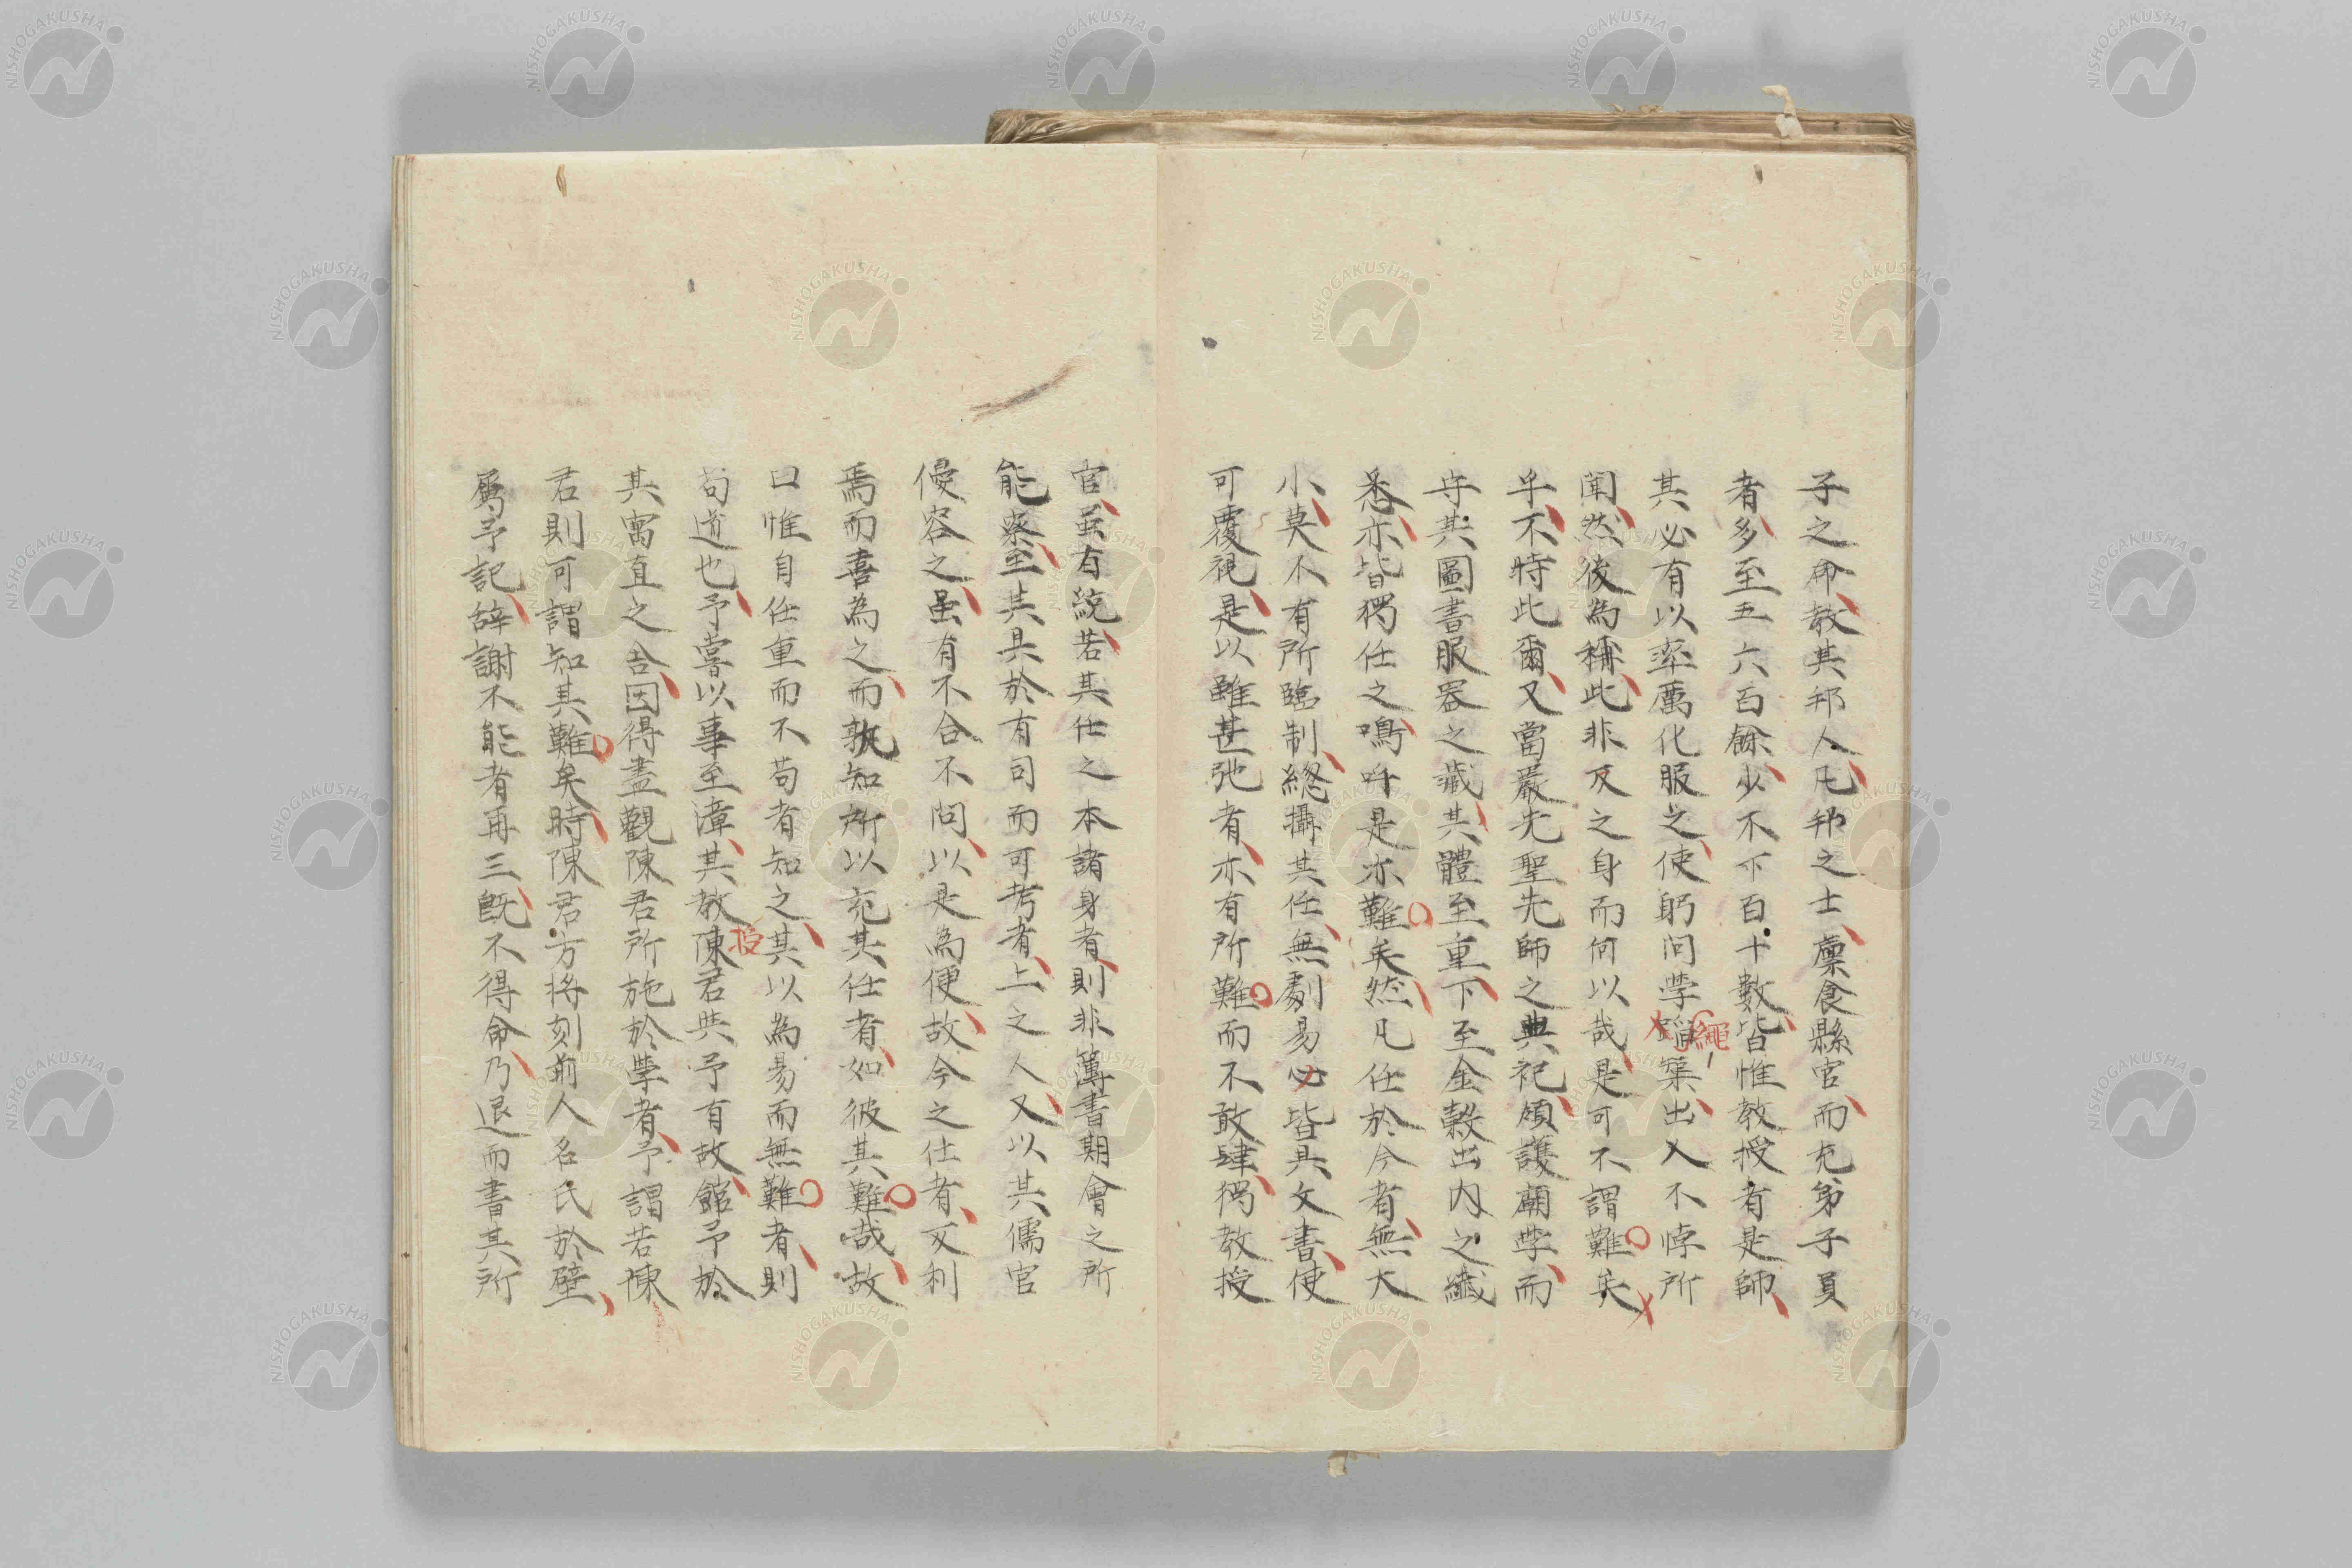 子之命教其邦人凡邦之士廪食縣官而充弟子員
者多至五六百餘少不下百十數皆惟教授者是師
其必有以率厲化服之使躬問學蹈榘出入不悖所
繩
聞然後為稱此非反之身而何以哉是可不謂難矣
乎不特此爾又當嚴先聖先師之典祀頫護廟學而
守其圖書服器之藏其體至重下至金穀出內之纖
悉亦皆獨任之嗚呼是亦難矣然凡仕於今者無大
小莫不有所臨制總攝其任無劇易必皆具文書使
可覆視是以雖甚弛者亦有所難而不敢肆獨教授
官虽有統若其仕之本諸身者則非簿書期會之所
能察至其具於有司而可考者上之人又以其儒官
優容之虽有不合不問以是為便故今之仕者反利
焉而喜為之而孰知所以充其任者如彼其難哉故
曰惟自任重而不苟者知之其以為易而無難者則
苟道也予嘗以事至漳其教陳君與予有故館予於
授
其寓直之舍因得盡觀陳君所施於學者予謂若陳
君則可謂知其難矣時陳君方將刻前人名氏於壁
屬予記辞謝不能者再三既不得命乃退而書其所
NISHOGAKUSHA